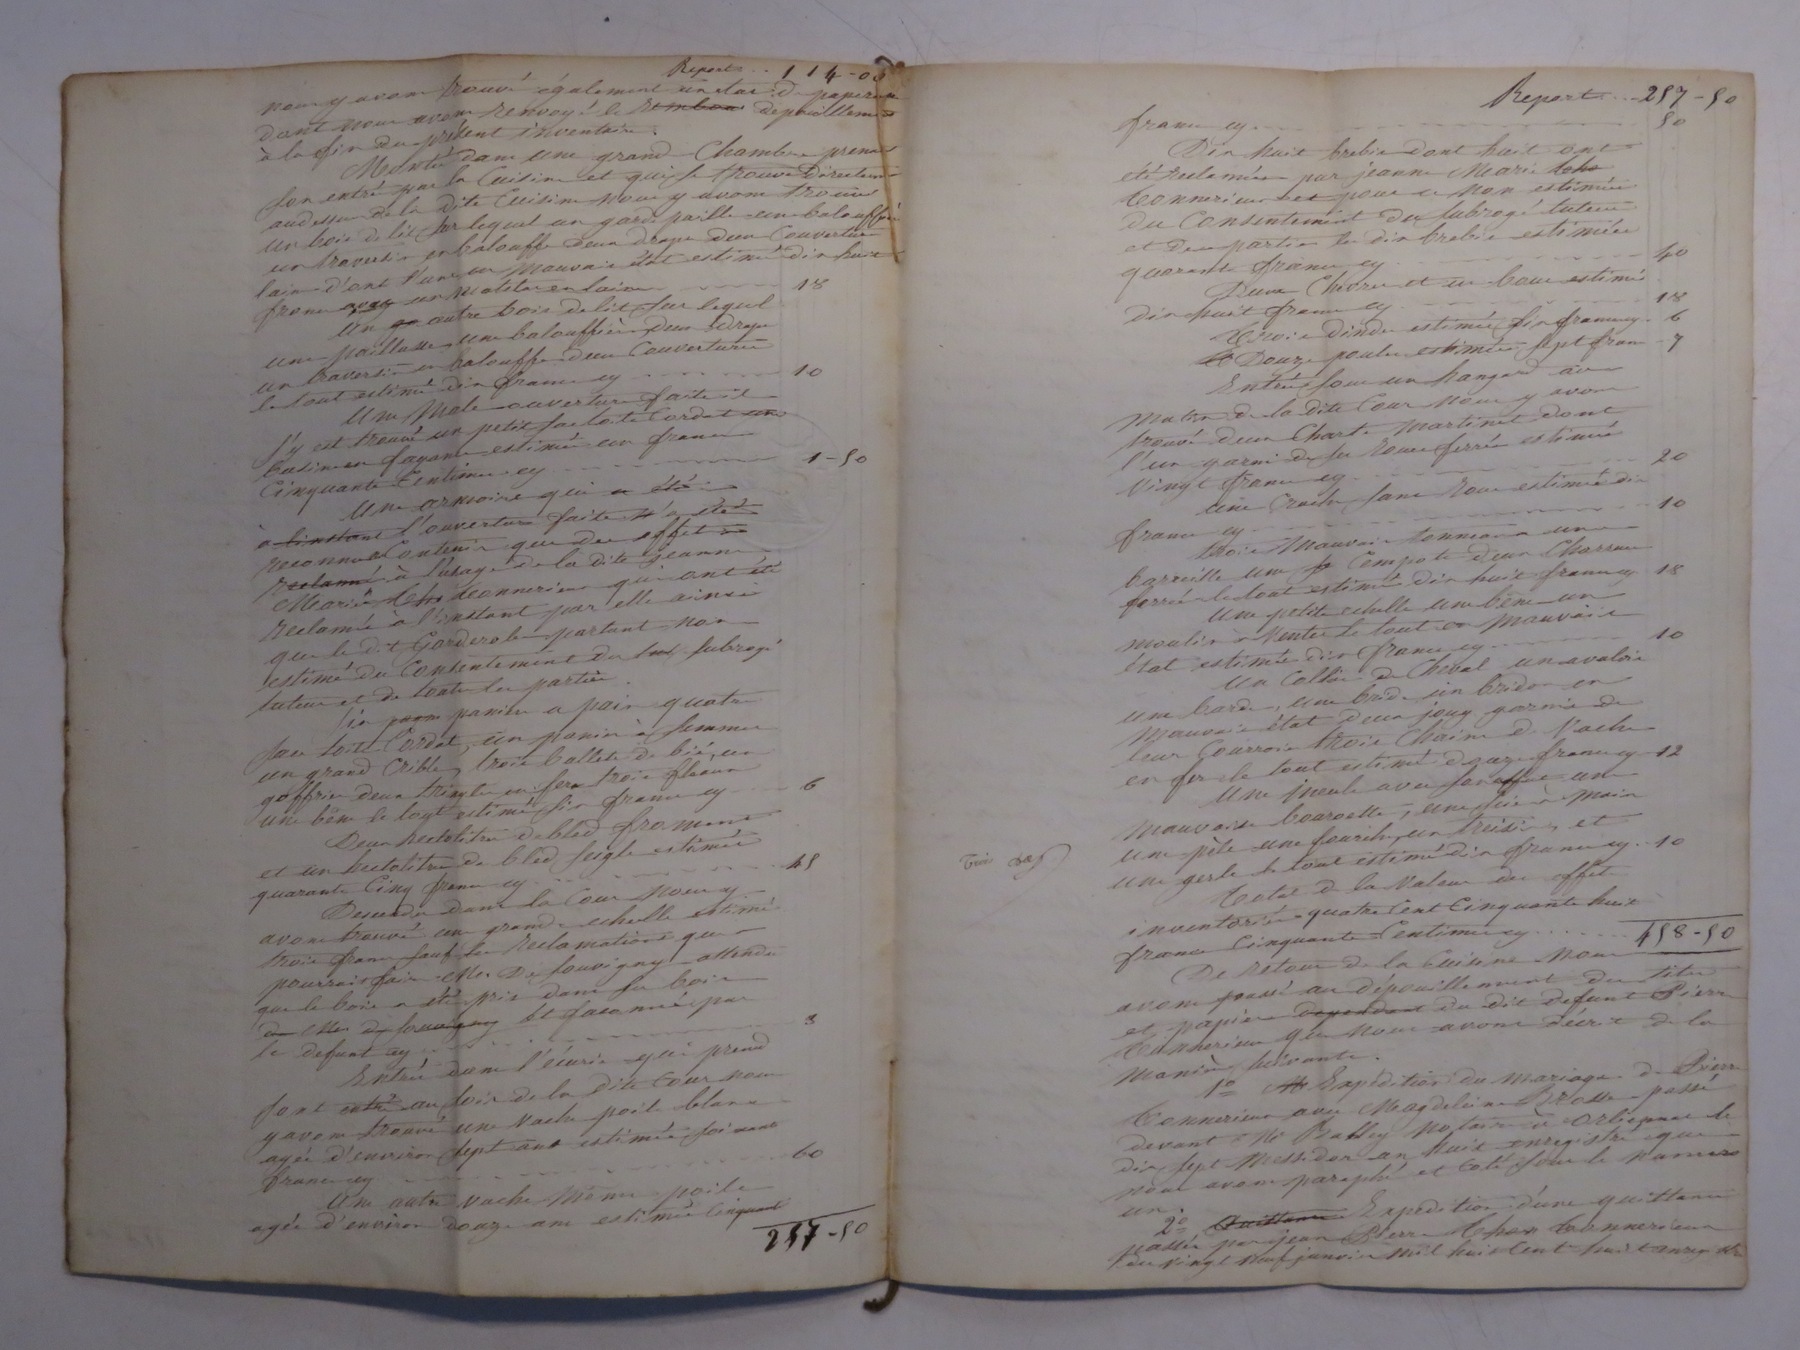 Report .. 114-00
nous y avons trouvé également un tas de papereu
dont nous avons renvoyé le dépouillement
à la fin du présent inventaire.
Monté dans une grand Chambre prenant
son entré par la Cuisine et qui se trouve directem
audessus de la dite Cuisine nous y avons trouvé
un bois de lit sur lequel un garde paille une balouffière
un traversin en balouffe deux draps deux Couverture
laine d'ont l'une en mauvais état estimé dix huit
franc un matelas en laine 18
Un autre bois de lit sur lequel
une paillasse, une balouffière deux draps
un traversin en balouffe deux Couvertures
le tout estimé dix franc cy 10
Une male ouverture faite il
s'y est trouvé un petit sac toile Cordat un
bassin en fayance estimé un franc
Cinquante Centimes cy 1-50
Une armoire qui a été
à l'instant l'ouverture faite n'a été
reconnu Contenir que des effets
reclamé à l'usage de la dite jeanne
Marie tonnerieux qui ont été
reclamé à l'instant par elle ainsi
que le dit Garderobe partant non
estimé du Consentement du subrogé
tuteur et de toutes les parties.
Six panier a pain quatre
sacs toile Cordat, un panier à semmer
un grand Crible, trois ballets de bié, un
goffrier deux tringles en fers trois fléaux
une bêne le tout estimé six franc cy 6
Deux hectolitre de bled froment
et un hectolitre de bled seigle estimés
quarante Cinq franc cy 45
Descendu dans la Cour nous y
avons trouvé une grande echelle estimé
trois franc sauf les reclamations que
pourrais faire Mr. De Souvigny attendu
que le bois a été pris dans ses bois
de Mr. de Souvigny et faconné par
le defunt cy 3
Entré dans l'écurie qui prend
son entré au soir de la dite Cour nous
y avons trouvé une vache poile blanc
agée d'environ sept ans estimée soixante
franc cy 60
Une autre vache même poile
agée d'environ douze ans estimée Cinquante
257-50
Report ... 257-50
franc cy 50
Dix huit brebis dont huit ont
été reclamées par jeanne Marie
tonnerieux et pour ce non estimées
du Consentement du subrogé tuteur
et des parties les dix brebis estimées
quarante franc cy 40
Deux Chèvres et un bouc estimé
dix huit franc cy 18
Trois dindes estimées six franc cy 6
Douze poules estimées sept franc 7
Entrés sous un hangard au
matin de la dite Cour nous y avons
trouvé deux Chars Martinet dont
l'un garni de ses Roues ferrés estimés
vingt franc cy 20
une sans roue estimée dix
franc cy 10
trois mauvais tonneaux une
barreille une Tempote deux Charrues
ferrée le tout estimés dix huit franc cy 18
Une petite echelle une bène un
moulin a venter le tout en mauvais
état estimés dix franc cy 10
Un Collier de Cheval un avaloir
une barde, une bride un bridon en
mauvais état deux joug garnis de
leur Courroies trois Chaine de Vache
en fer le tout estimé douze franc cy 12
Une meule avec son une
mauvaise bourrette, une scie à main
une pèle une fourche un et
une gerle le tout estimé dix franc cy 10
Total de la valeur des effets
inventoriés quatre Cent Cinquante huit
francs Cinquante Centimes cy 458-50
De retour de la Cuisine nous
avons passé au dépouillement des titres
et papiers dependant du dit defunt Pierre
Tonnerieux que nous avons décrit de la
manière suivante.
1º Expédition du mariage de Pierre
Tonnerieux avec Magdeleine Brosse passé
devant Me notaire à le
dix sept Messidor an huit enregistré que
nous avons paraphé et coté sous le numero
un.
2º Quittance Expédition d'une quittance
passée par jean Pierre Tonnerieux
du vingt neuf janvier mil huit Cent huit enregistré